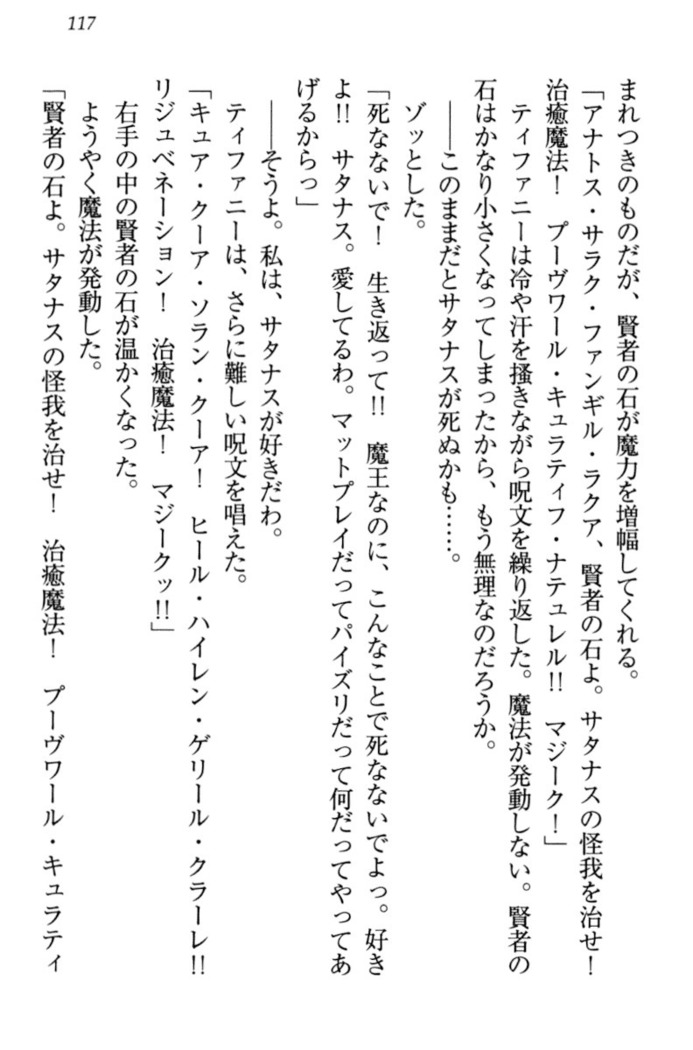 117
まれつきのものだが、賢者の石が魔力を増幅してくれる。
「アナトス・サラク・ファンギル・ラクア、賢者の石よ。サタナスの怪我を治せ！
治癒魔法！　プーヴワール・キュラティフ・ナテュレル!!　マジーク！」
　ティファニーは冷や汗を掻きながら呪文を繰り返した。魔法が発動しない。賢者の
石はかなり小さくなってしまったから、もう無理なのだろうか。
　――このままだとサタナスが死ぬかも……。
　ゾッとした。
「死なないで！　生き返って!!　魔王なのに、こんなことで死なないでよっ。好き
よ!!　サタナス。愛してるわ。マットプレイだってパイズリだって何だってやってあ
げるからっ」
　――そうよ。私は、サタナスが好きだわ。
　ティファニーは、さらに難しい呪文を唱えた。
「キュア・クーア・ソラン・クーア！　ヒール・ハイレン・ゲリール・クラーレ!!
リジュベネーション！　治癒魔法！　マジークッ!!」
　右手の中の賢者の石が温かくなった。
　ようやく魔法が発動した。
「賢者の石よ。サタナスの怪我を治せ！　治癒魔法！　プーヴワール・キュラティ